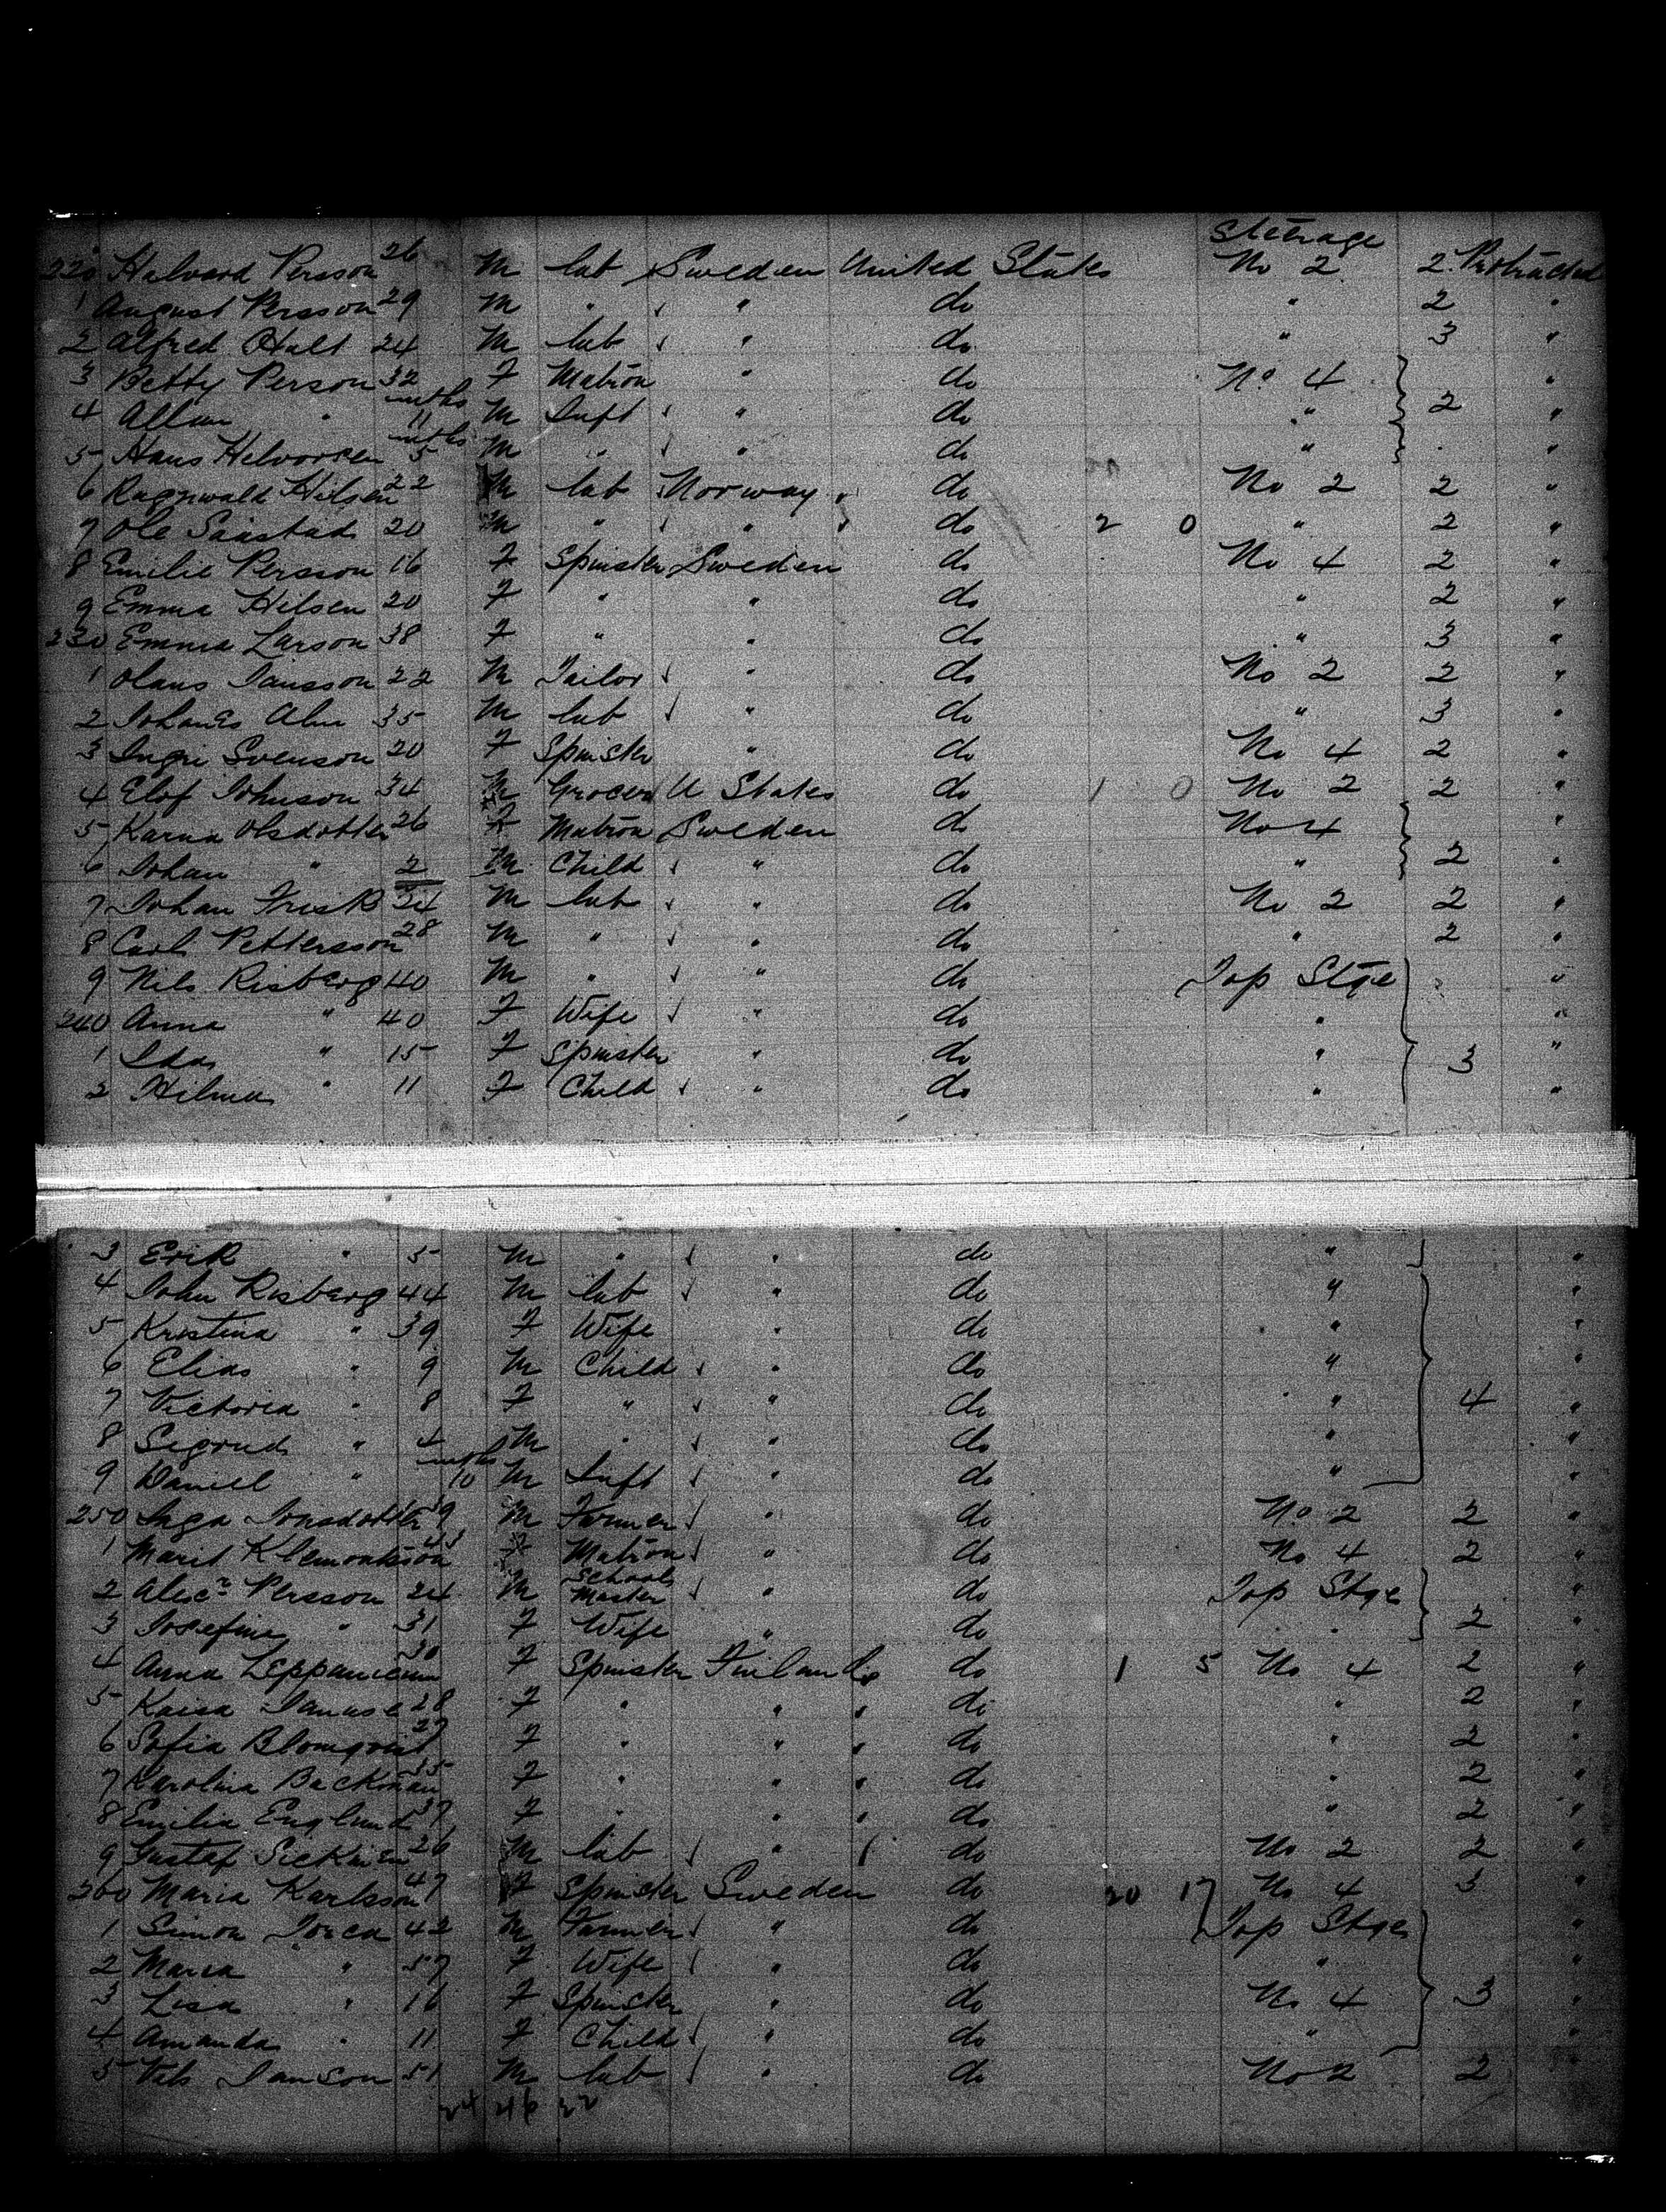 Steerage
220 Halvard Persson 26 M lab Sweden United States No 2 2 Protracted
1 August Persson 29 M " " do " 2 "
2 Alfred Hult 24 M lab " do " 3 "
3 Betty Person 32 F Matron " do No 4 "
4 Allan " 11 mths M Inft " do " 2 "
5 Haus Helvorsen 5 mths M " " do " "
6 Ragnwald Hilsen 22 M lab Norway do No 2 2 "
7 Ole 20 M " " do 2 0 " 2 "
8 Emilie Persson 16 F Spinster Sweden do No 4 2 "
9 Emma Hilsen 20 F " " do " 2 "
230 Emma Larson 38 F " " do " 3 "
1 Olaus Jansson 22 M Tailor " do No 2 2 "
2 Johanes Alm 35 M lab " do " 3 "
3 Ingri Svenson 20 F Spinster " do No 4 2 "
4 Elof Johnson 34 M Grocer U States do 1 0 No 2 2 "
5 Karna Olsdotter 26 F Matron Sweden do No 4 "
6 Johan " 2 M Child " do " 2 "
7 Johan Frisk 24 M lab " do No 2 2 "
8 Carl Pettersson 28 M " " do " 2 "
9 Nils Risberg 40 M " " do Top Stge "
240 Anna " 40 F Wife " do " "
1 Ida " 15 F Spinster " do " 3 "
2 Hilma " 11 F Child " do " "
3 Erik " 5 M " " do " "
4 John Risberg 44 M lab " do " "
5 Kristina " 39 F Wife " do " "
6 Elias " 9 M Child " do " "
7 Victoria " 8 F " " do " 4 "
8 Sigrud " 4 M " " do " "
9 Daniel " 10 mths M Inft " do " "
250 Inga Jonsdotter 39 M Farmer " do No 2 2 "
1 Marit Klemontsson 43 F Matron " do No 4 2 "
2 Alexr Persson 24 M School Master " do Top Stge "
3 Josefine " 31 F Wife " do " 2 "
4 Anna 30 F Spinster Finland do 1 5 No 4 2 "
5 Kaisa 28 F " " do " 2 "
6 Sofia Blomqvist 27 F " " do " 2 "
7 Karolina Backman 35 F " " do " 2 "
8 Emilia Englund 37 F " " do " 2 "
9 Gustaf 26 M lab " do No 2 2 "
260 Maria Karlsson 47 F Spinster Sweden do 20 17 No 4 3 "
1 Simon 42 M Farmer " do Top Stge "
2 Maria " 57 F Wife " do " "
3 Lisa " 16 F Spinster " do No 4 3 "
4 Amanda " 11 F Child " do " "
5 Nils Janson 51 M lab " do No 2 2 "
24 46 22